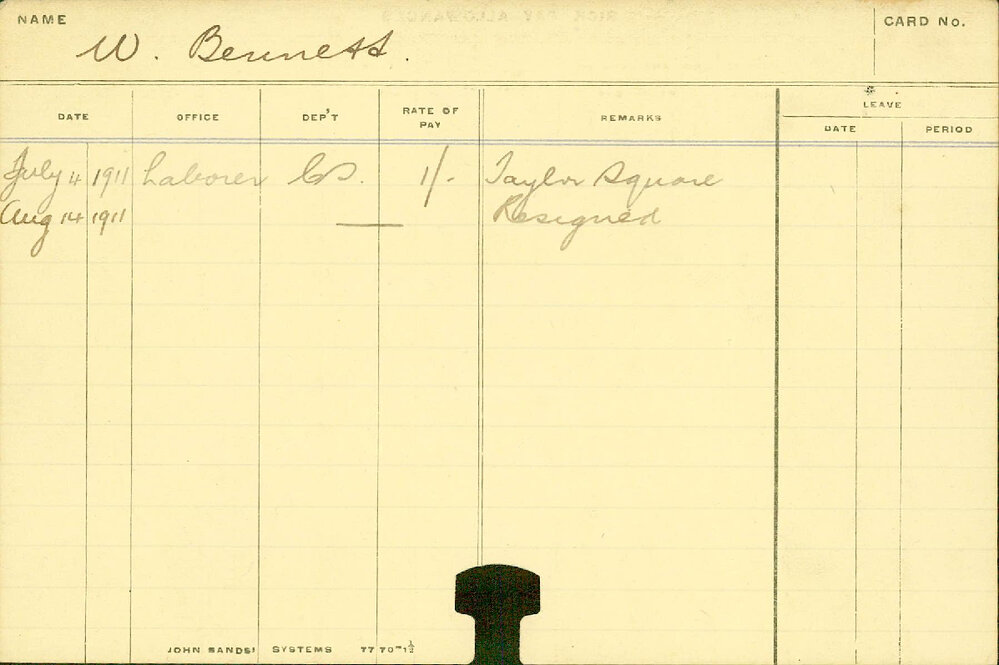 NAME
W. Bennett.
CARD No.
DATE OFFICE DEP'T RATE OF PAY REMARKS LEAVE
DATE PERIOD
July 4 1911 Laborer 1/- Taylor Square
Aug 14 1911 — Resigned
JOHN SANDS' SYSTEMS 77 70m 1½